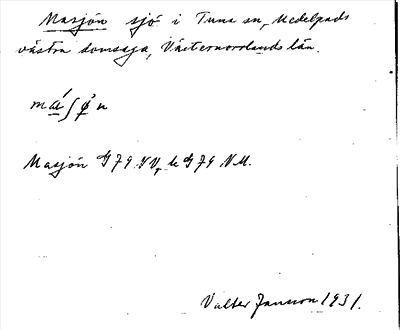 Masjön sjö i Tuna sn, Medelpads
västra domsaga, Västernorrlands län.
Masjön G79 SV, k G79 NV.
Valter Jansson 1931.